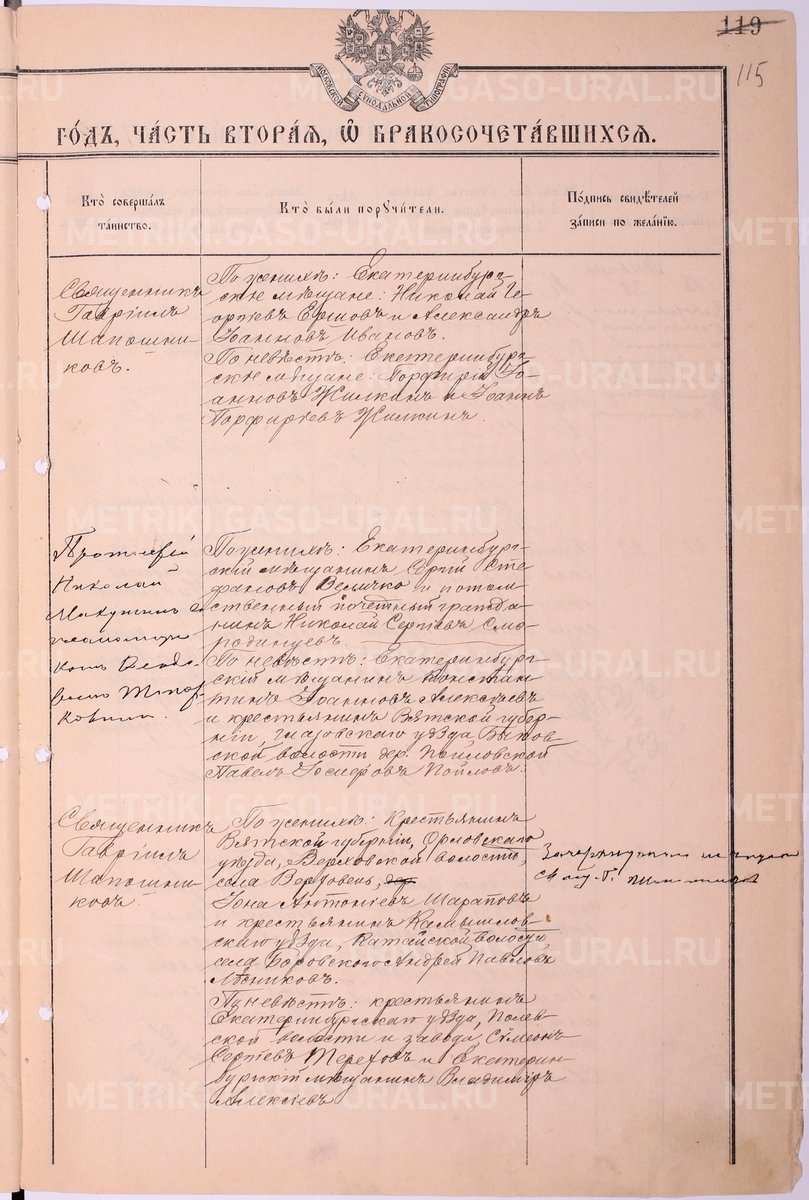 119
115
МОСКОВСКОЙ СѴНОДАЛЬНОЙ ТИПОГРАФІИ
ГО́ДЪ, ЧА́СТЬ ВТОРА́Я, Ѡ҆ БРАКОСОЧЕТА́ВШИХСЯ.
Кто̀ совершáлъ
тáинство.
Кто̀ бы́ли поручи́тели.
Пóдпись свидѣ́телей
зáписи по желáнію.
Священникъ
Гавріилъ
Шапошни-
ковъ.
По женихѣ: Екатеринбург-
скіе мѣщане: Николай Ге-
оргіевъ Ершовъ и Александръ
Іоанновъ Ивановъ.
По невѣстѣ: Екатеринбург-
скіе мѣщане: Порфирій Іо-
анновъ Жилкинъ и Іоаннъ
Порфиріевъ Жилкинъ.
Протоіерей
Николай
съ
Влади-
По женихѣ: Екатеринбург-
скій мѣщанинъ Сергій Сте-
фановъ Величко и потом-
ственный почетный гражда-
нинъ Николай Сергіевъ Смо-
родинцевъ.
По невѣстѣ: Екатеринбург-
скій мѣщанинъ Констан-
тинъ Іоанновъ Алексѣевъ
и крестьянинъ Вятской губер-
ніи, Глазовскаго уѣзда
ской волости дер. Пойловской
Павелъ Іосифовъ Пойловъ.
Священникъ
Гавріилъ
Шапошни-
ковъ.
По женихѣ: Крестьянинъ
Вятской губерніи, Орловскаго
уѣзда, Верховской волости,
села Верховень, дер.
Іона Антоніевъ Шараповъ
и крестьянинъ Камышлов-
скаго уѣзда, Катайской волости
села Боровскаго Андрей Павловъ
Лѣсниковъ.
По невѣстѣ: крестьянинъ
Екатеринбургскаго уѣзда, Полев-
ской волости и завода, Сѵмеонъ
Сергіевъ Тереховъ и Екатерин-
бургскій мѣщанинъ Владиміръ
Алексіевъ
METRIKI.GASO-URAL.RU